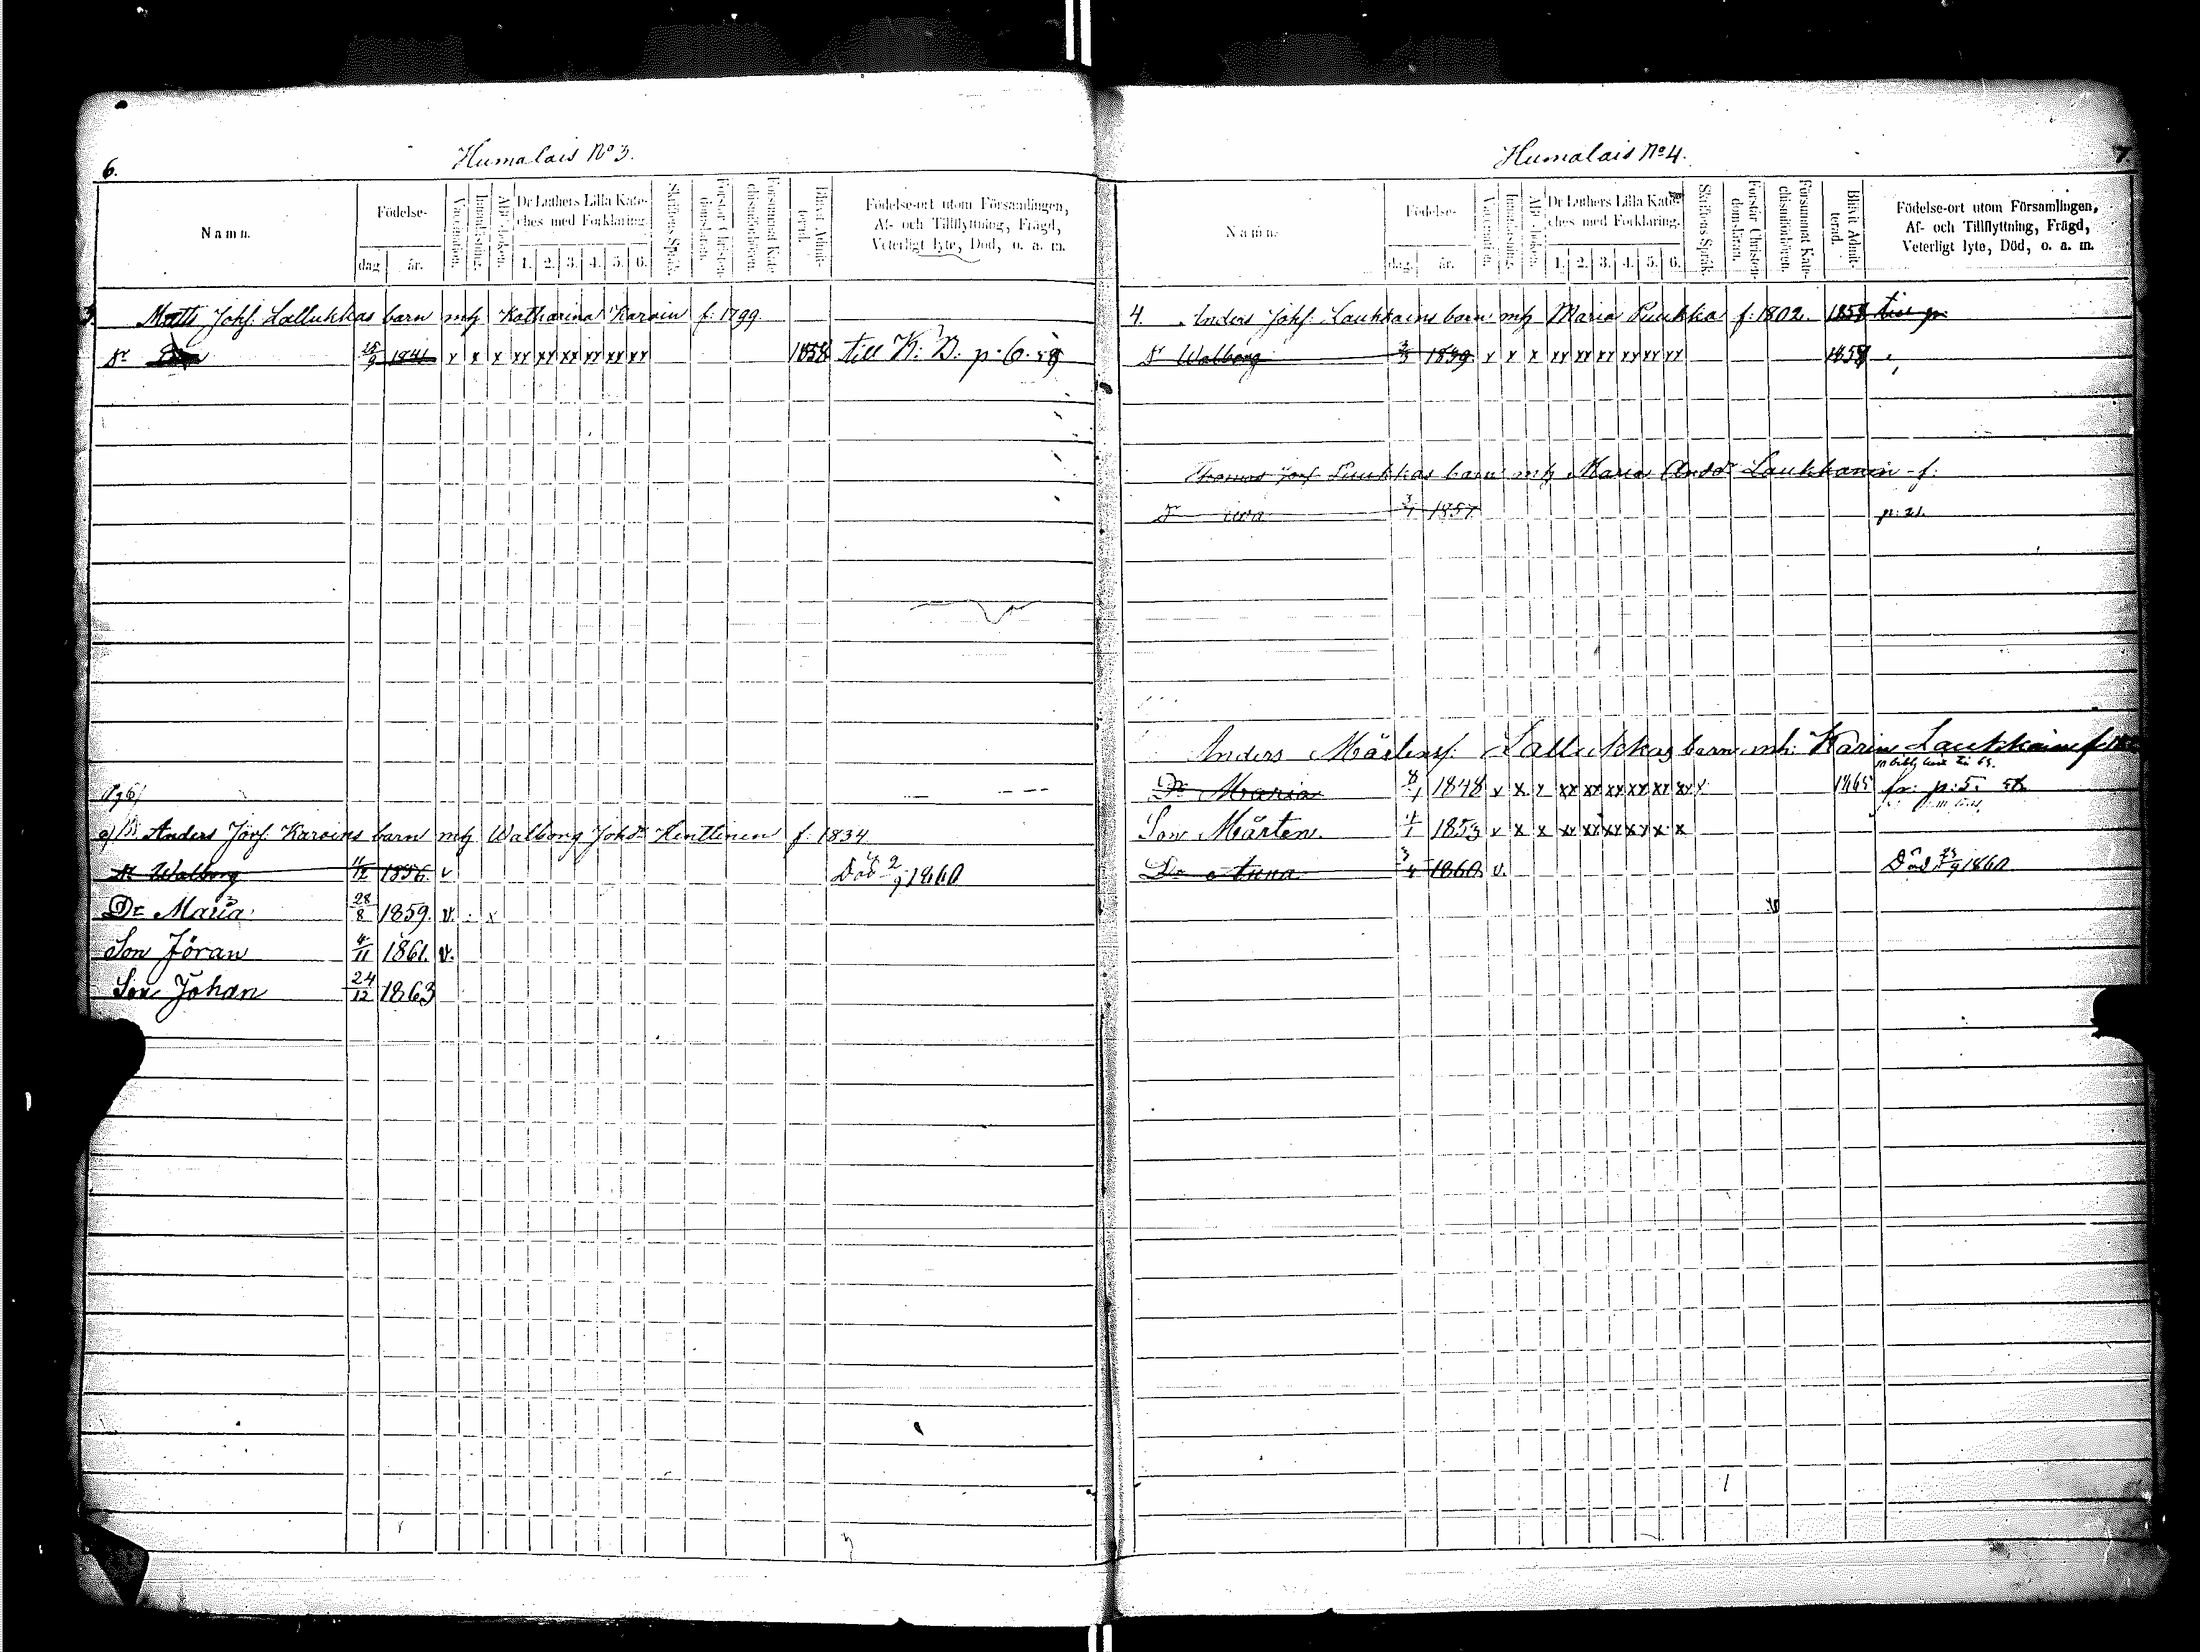 6.
Humalais No 3.
Namn.
Födelse-
dag
år.
Vaccination.
Innanläsning.
Abc-boken.
Dr Luthers Lilla Kate-
ches med Förklaring.
1. 2. 3. 4. 5. 6.
Skriftens Språk.
Förstår Christen-
domsläran.
Försummat Kate-
chismiförhören.
Blivit Admit-
terad.
Födelse-ort utom Församlingen,
Af- och Tillflyttning, Frägd,
Veterligt lyte, Död, o. a. m.
3. Matts Johs. Lallukkas barn mh Katharina Karoin f. 1799
Dr 1841 x x x xx xx xx xx xx xx 1858 till K. B. p. 6. 58
Anders Jörs. Karoins barn mh Walborg Johdr Kenttinen f. 1834
Dr Walborg 11/12 1856. v Död 2/9 1860
Dr Maria 28/8 1859. v. x
Son Jöran 4/11 1861. v.
Son Johan 24/12 1863
7.
Humalais No 4.
Namn.
Födelse-
dag.
år.
Vaccination.
Innanläsning.
Abc-boken.
Dr Luthers Lilla Kate-
ches med Förklaring.
1. 2. 3. 4. 5. 6.
Skriftens Språk.
Förstår Christen-
domsläran.
Försummat Kate-
chismiförhören.
Blivit Admit-
terad.
Födelse-ort utom Församlingen,
Af- och Tillflyttning, Frägd,
Veterligt lyte, Död, o. a. m.
4. Anders Johs. Laukkains barn mh Maria Puukka f. 1802.
Dr Walborg 1839. x x x xx xx xx xx xx xx
Thomas Jörs. Puukkas barn mh Maria Andsdr Laukkanin f.
Dr 1857 p. 21.
Anders Mårtens. Lallukkas barn mh: Karin Laukkain f.
Dr Maria 8/1 1848 x x x xx xx xx xx xx xx 1865 p. 5.
Son Mårten. 1853 v x x xx xx xx xx x x
Dr Anna 3/4 1860 v. Död 1860